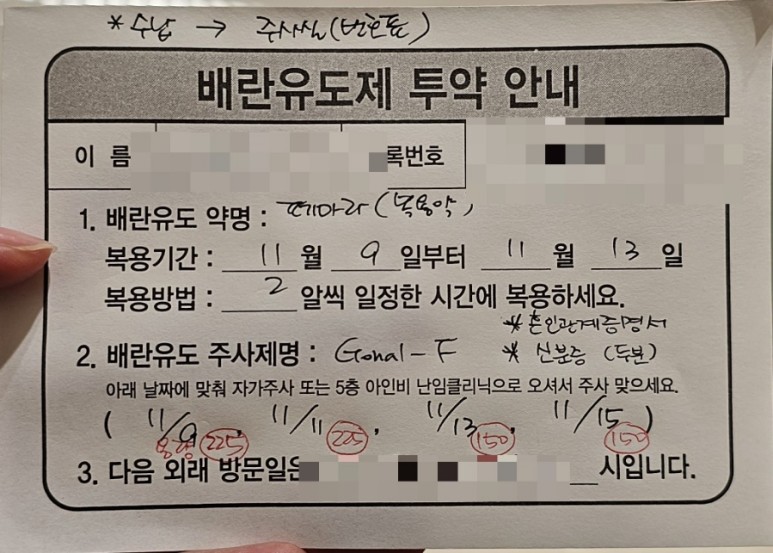 * 수납 → 주사실(번호표)
배란유도제 투약 안내
이 름 록번호
1. 배란유도 약명 : 페마라(복용약)
복용기간 : 11 월 9 일부터 11 월 13 일
복용방법 : 2 알씩 일정한 시간에 복용하세요.
* 혼인관계증명서
2. 배란유도 주사제명 : Gonal-F * 신분증 (두분)
아래 날짜에 맞춰 자가주사 또는 5층 아인비 난임클리닉으로 오셔서 주사 맞으세요.
( 11/9, 11/11, 11/13, 11/15 )
225 225 150 150
3. 다음 외래 방문일은 시입니다.